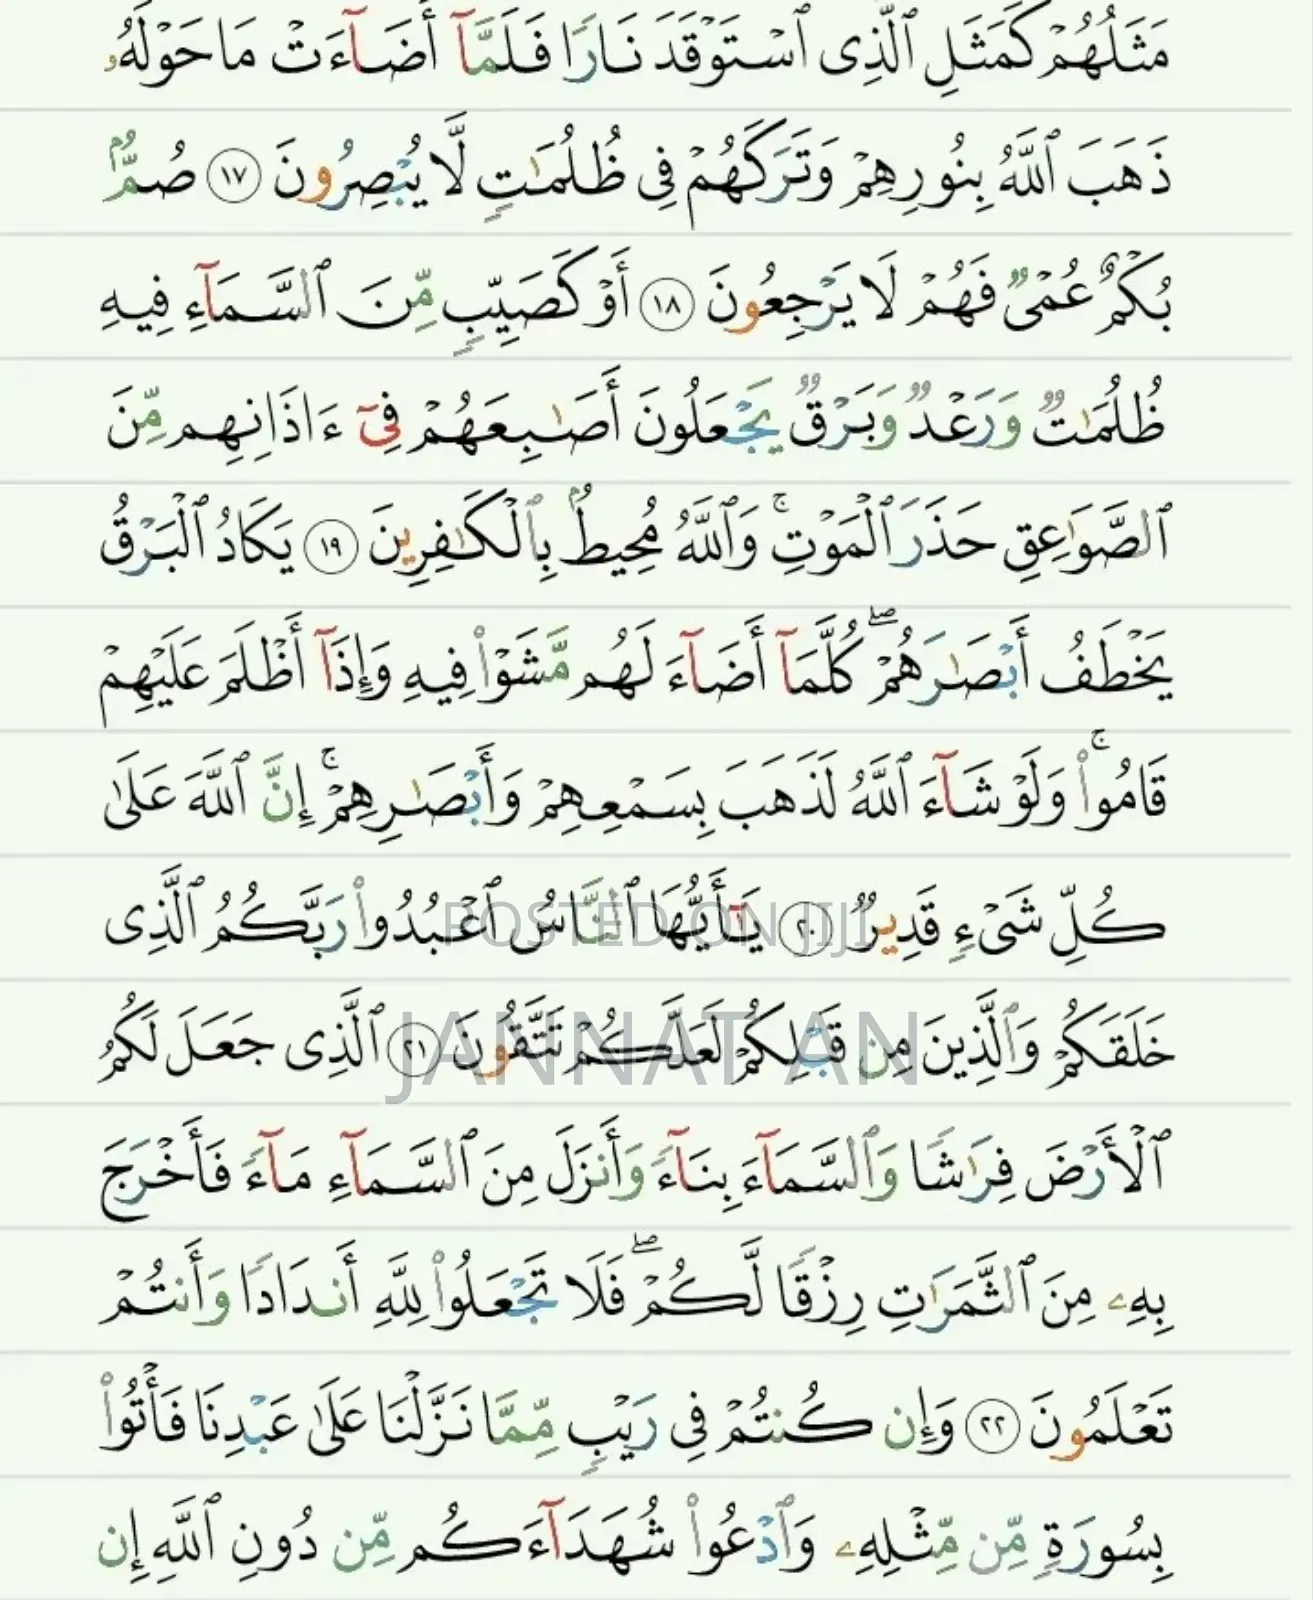 مَثَلُهُمْ كَمَثَلِ ٱلَّذِى ٱسْتَوْقَدَ نَارًا فَلَمَّآ أَضَآءَتْ مَا حَوْلَهُۥ
ذَهَبَ ٱللَّهُ بِنُورِهِمْ وَتَرَكَهُمْ فِى ظُلُمَٰتٍ لَّا يُبْصِرُونَ ١٧ صُمٌّۢ
بُكْمٌ عُمْىٌ فَهُمْ لَا يَرْجِعُونَ ١٨ أَوْ كَصَيِّبٍ مِّنَ ٱلسَّمَآءِ فِيهِ
ظُلُمَٰتٌ وَرَعْدٌ وَبَرْقٌ يَجْعَلُونَ أَصَٰبِعَهُمْ فِىٓ ءَاذَانِهِم مِّنَ
ٱلصَّوَٰعِقِ حَذَرَ ٱلْمَوْتِ ۚ وَٱللَّهُ مُحِيطٌۢ بِٱلْكَٰفِرِينَ ١٩ يَكَادُ ٱلْبَرْقُ
يَخْطَفُ أَبْصَٰرَهُمْ ۖ كُلَّمَآ أَضَآءَ لَهُم مَّشَوْا۟ فِيهِ وَإِذَآ أَظْلَمَ عَلَيْهِمْ
قَامُوا۟ ۚ وَلَوْ شَآءَ ٱللَّهُ لَذَهَبَ بِسَمْعِهِمْ وَأَبْصَٰرِهِمْ ۚ إِنَّ ٱللَّهَ عَلَىٰ
كُلِّ شَىْءٍ قَدِيرٌ ٢٠ يَٰٓأَيُّهَا ٱلنَّاسُ ٱعْبُدُوا۟ رَبَّكُمُ ٱلَّذِى
POSTED ON JIJI
خَلَقَكُمْ وَٱلَّذِينَ مِن قَبْلِكُمْ لَعَلَّكُمْ تَتَّقُونَ ٢١ ٱلَّذِى جَعَلَ لَكُمُ
JANNAT AN
ٱلْأَرْضَ فِرَٰشًا وَٱلسَّمَآءَ بِنَآءً وَأَنزَلَ مِنَ ٱلسَّمَآءِ مَآءً فَأَخْرَجَ
بِهِۦ مِنَ ٱلثَّمَرَٰتِ رِزْقًا لَّكُمْ ۖ فَلَا تَجْعَلُوا۟ لِلَّهِ أَندَادًا وَأَنتُمْ
تَعْلَمُونَ ٢٢ وَإِن كُنتُمْ فِى رَيْبٍ مِّمَّا نَزَّلْنَا عَلَىٰ عَبْدِنَا فَأْتُوا۟
بِسُورَةٍ مِّن مِّثْلِهِۦ وَٱدْعُوا۟ شُهَدَآءَكُم مِّن دُونِ ٱللَّهِ إِن